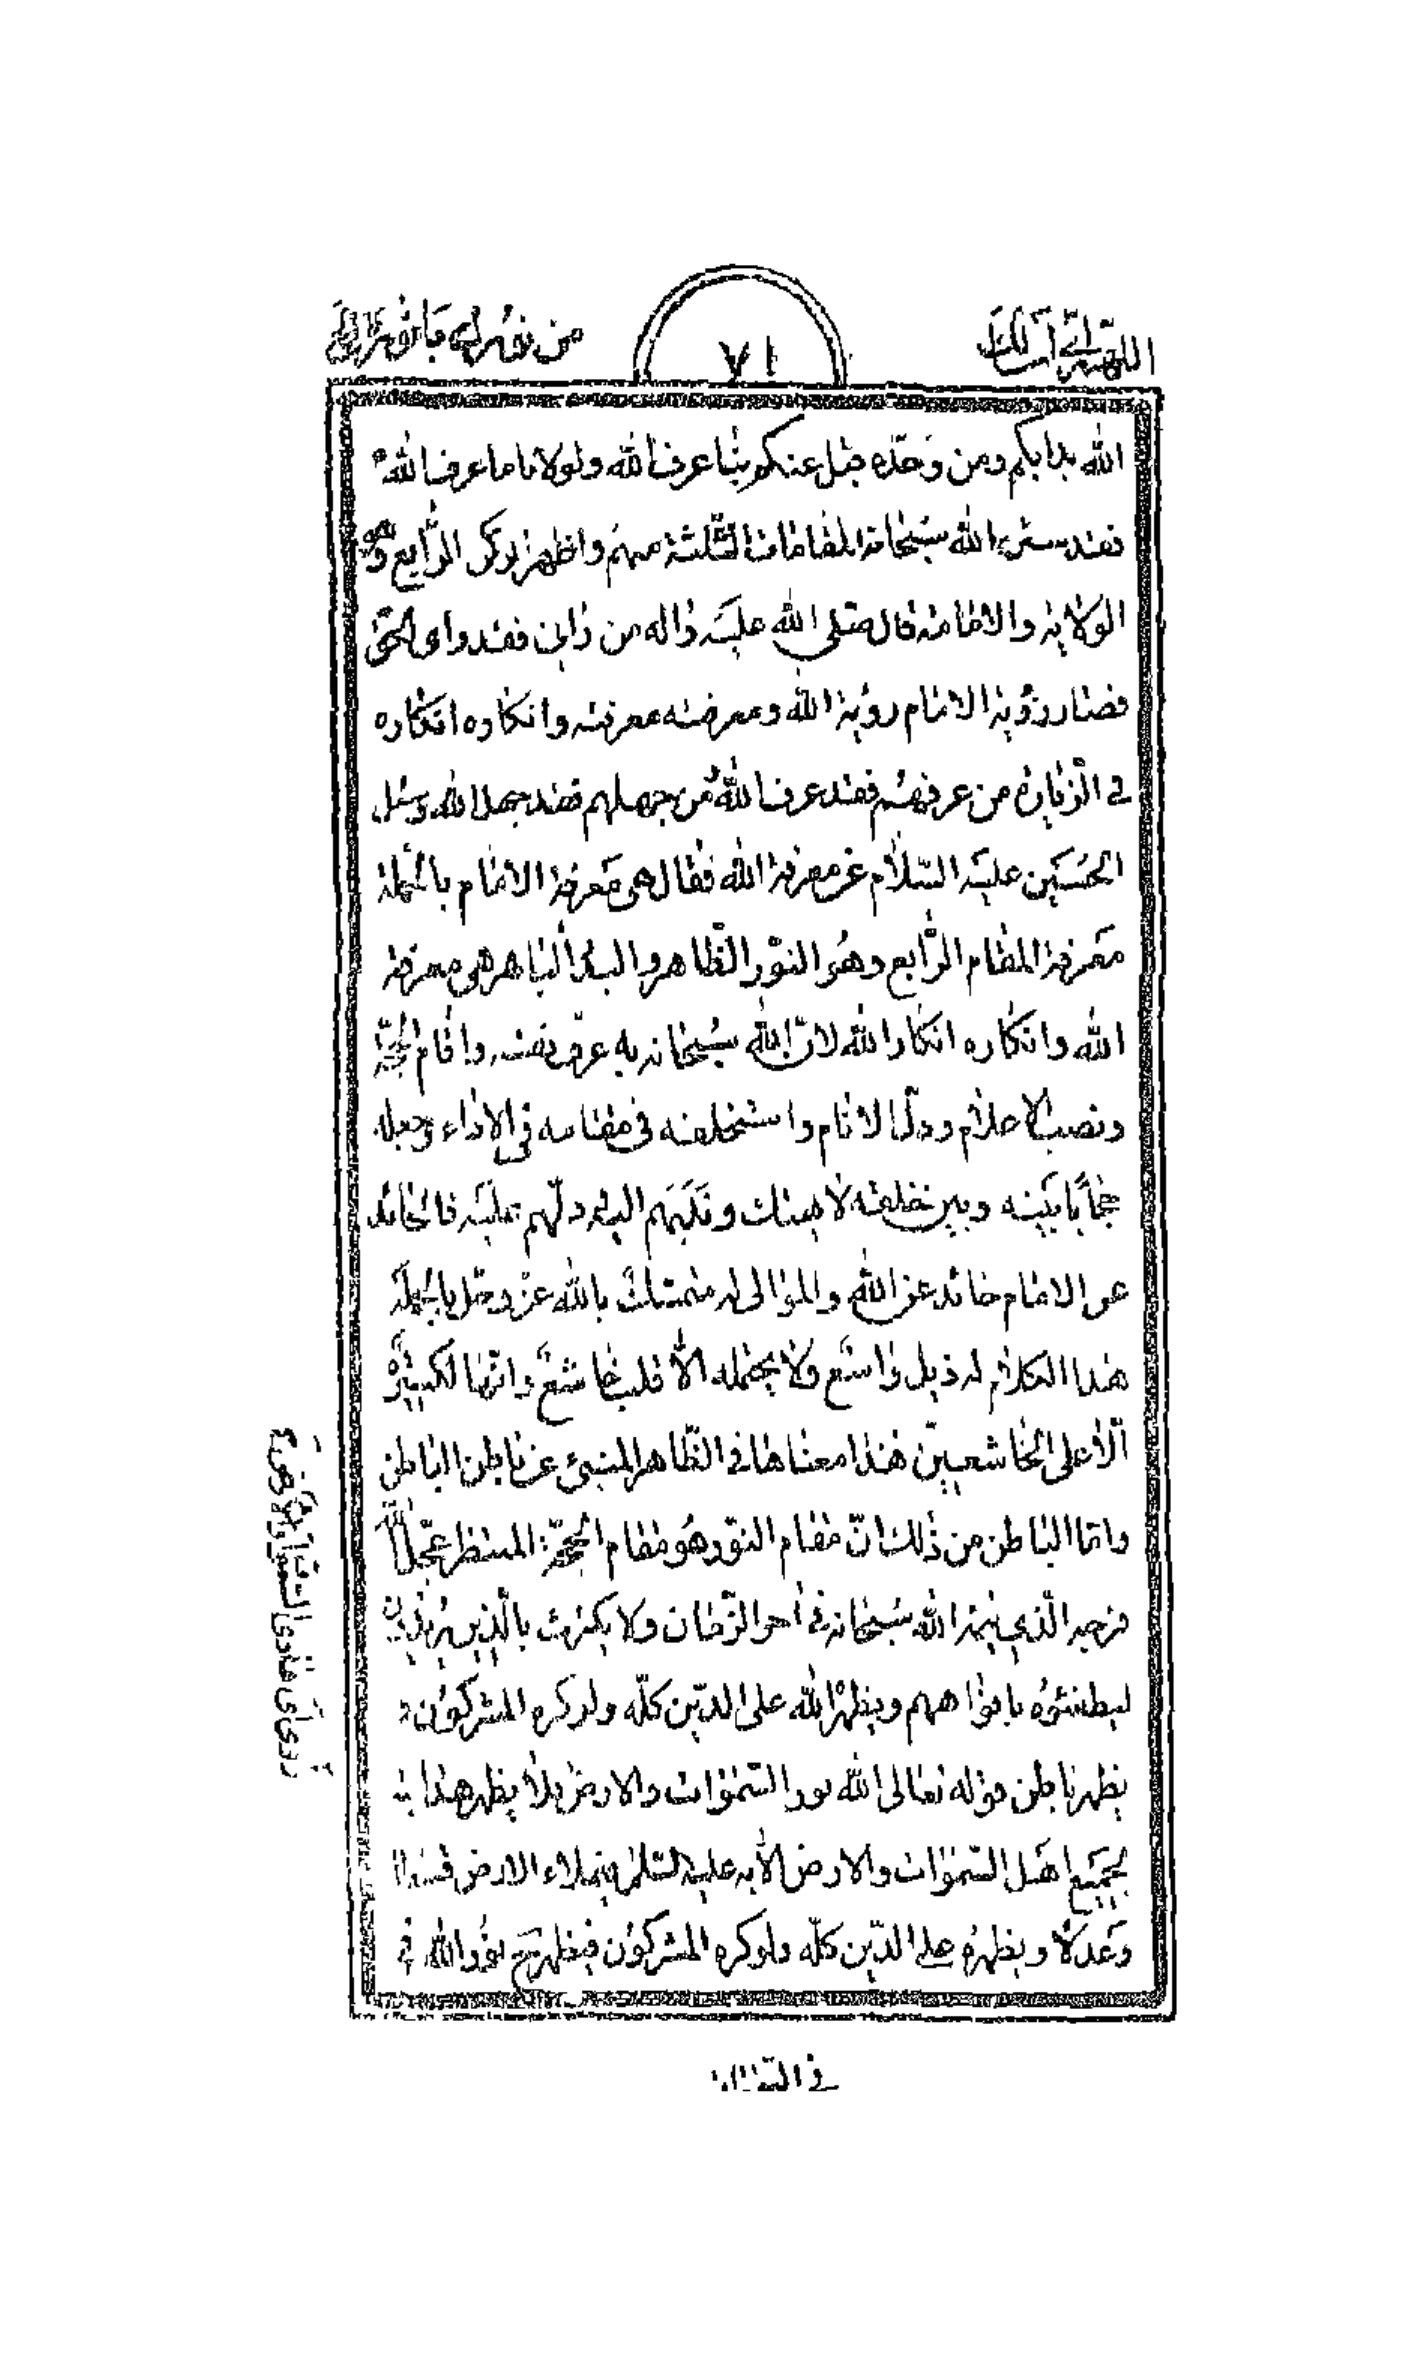 اللهم اني اسألك
٧١
من نورك بانوره الخ
الله بدا بكم ومن وحّده قبل عنكم بنا عرف الله ولولانا ما عرف الله
فقد ستر الله سبحانه المقامات الثلثة منهم واظهر لوكر الرابع وهو
الولاية والامامة قال صلى الله عليه واله من راني فقد راى الحق
فصار رؤية الامام رؤية الله ومعرفته معرفته وانكاره انكاره
في الزيارة من عرفهم فقد عرف الله ومن جهلهم فقد جهل الله وسئل
الحسين عليه السلام عن معرفة الله فقال هى معرفة الامام بالجملة
معرفة المقام الرّابع وهو النوّر الظّاهر والبدر الباهر هى معرفة
الله وانكاره انكار الله لانّ الله سبحانه به عرّف نفسه واقام الحجّة
ونصب الاعلام ودلّ الانام واستخلفه في مقامه في الاداء وجعله
حجابا بينه وبين خلقه لا هناك ونبّههم اليه ودلّهم عليه فالحائد
عن الامام حائد عن الله والموالى له متمسّك بالله عزّ وجل بالجملة
هذا الكلام له ذيل واسع ولا يحتمله الا قلب خاشع وانّها لكبيرة
الّا على الخاشعين هذا معناها في الظّاهر المنبئ عن باطن الباطن
وامّا الباطن من ذلك انّ مقام النوّر هو مقام الحجّة المنتظر عجّل الله
فرجه الّذي يتمّه الله سبحانه في اخر الزّمان ولا يكترث بالّذين يريدون
ليطفئوه بافواههم ويظهره الله على الدّين كلّه ولو كره المشركون و
يظهر باطن قوله تعالى الله نور السّموات والارض بلا يظهر هذا
لجميع اهل السّموات والارض الا به عليه السّلم يملاء الارض قسطا
وعدلا ويظهره على الدّين كلّه ولو كره المشركون فيظهر ح نور الله في
روى اى هادى السّموات والارض
في السّ